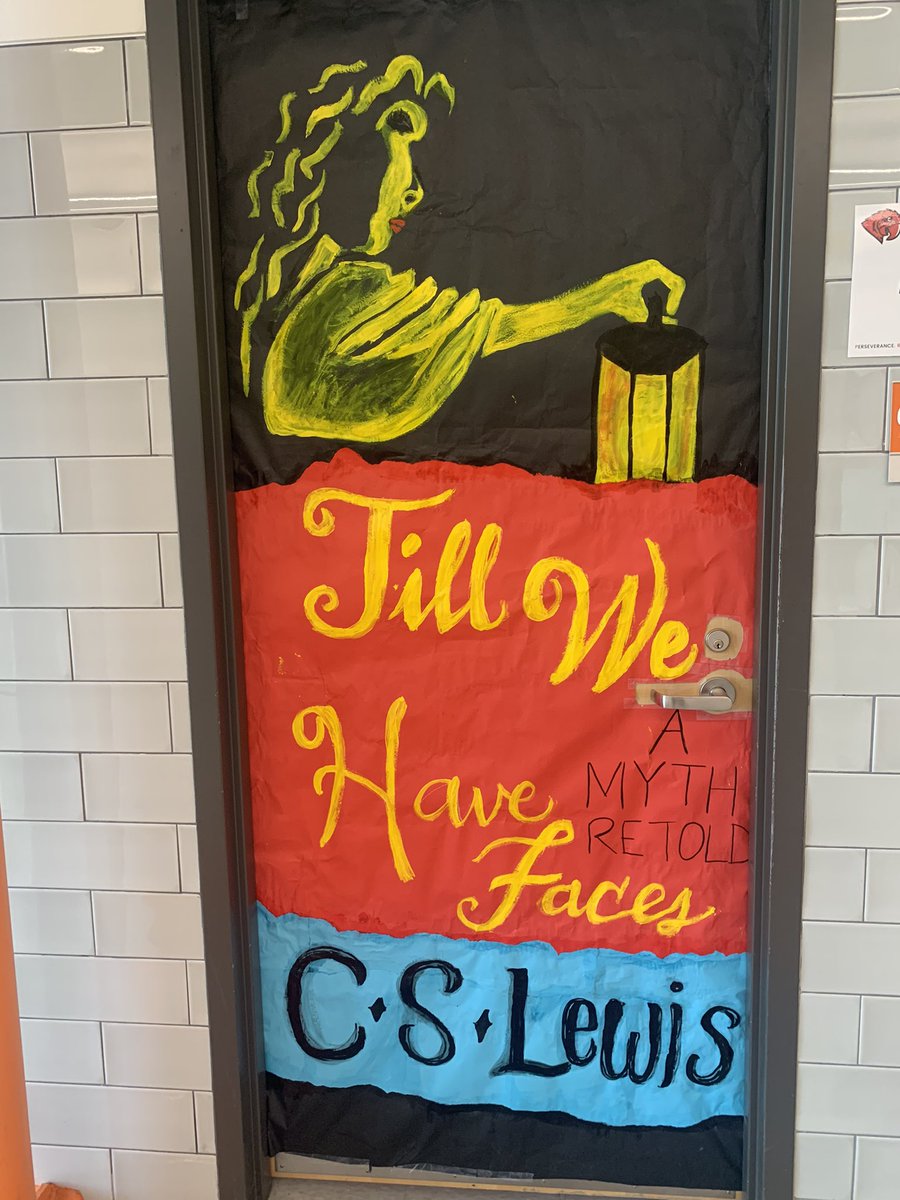 Till We
A
MYTH
RETOLD
Have
Faces
C·S·Lewis
PERSEVERANCE.